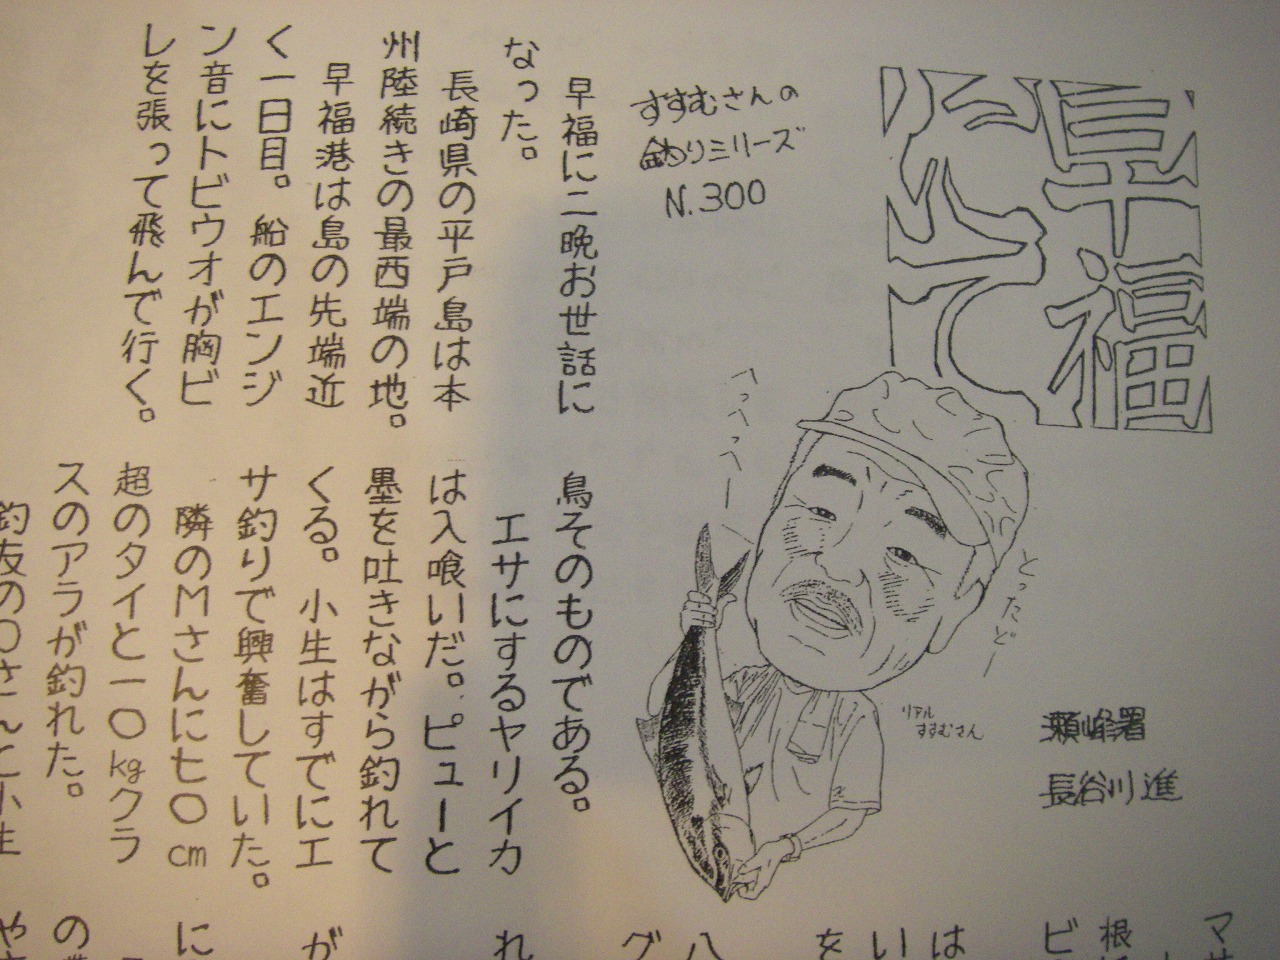 早福
にて
すすむさんの
釣りシリーズ
N.300
へっへっへー
とったどー
リアル
すすむさん
瀬峰署
長谷川進
早福に二晩お世話に
なった。
長崎県の平戸島は本
州陸続きの最西端の地。
早福港は島の先端近
く一日目。船のエンジ
ン音にトビウオが胸ビ
レを張って飛んで行く。
鳥そのものである。
エサにするヤリイカ
は入喰いだ。ピューと
墨を吐きながら釣れて
くる。小生はすでにエ
サ釣りで興奮していた。
隣のMさんに七〇cm
超のタイと一〇kgクラ
スのアラが釣れた。
釣友のOさんと小生
マサ
根
ビ
は
い
を
八
グ
れ
が
に
の
や